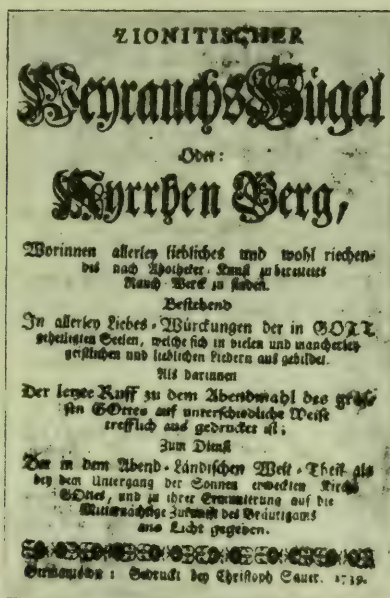 ZIONITISCHER
WeyrauchsHügel
Oder:
Myrrhen Berg,
Worinnen allerley liebliches und wohl riechen-
des nach Apotheker-Kunst zu bereitetes
Rauch-Werck zu finden.
Bestehend
In allerley Liebes-Würckungen der in GOTT
geheiligten Seelen, welche sich in vielen und mancherley
geistlichen und lieblichen Liedern aus gebildet.
Als darinnen
Der letzte Ruff zu dem Abendmahl des gros-
sen GOttes auf unterschiedliche Weise
trefflich aus gedrucket ist;
Zum Dienst
Der in dem Abend-Ländischen Welt-Theil als
bey dem Untergang der Sonnen erweckten Kirche
GOttes, und zu ihrer Ermunterung auf die
Mitternächtige Zukunft des Bräutigams
ans Licht gegeben.
Germantown: Gedruckt bey Christoph Sauer. 1739.